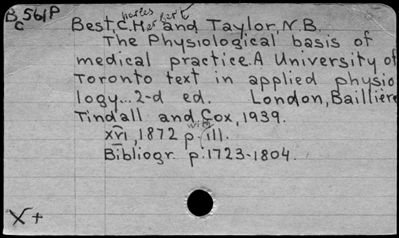 B 561P
C
Best, Charles Herbert and Taylor, N.B.
The Physiological basis of
medical practice. A University of
Toronto text in applied physio
logy... 2-d ed. London, Baillière
Tindall and Cox, 1939.
xvi, 1872 p. with ill.
Bibliogr. p. 1723-1804.
X+